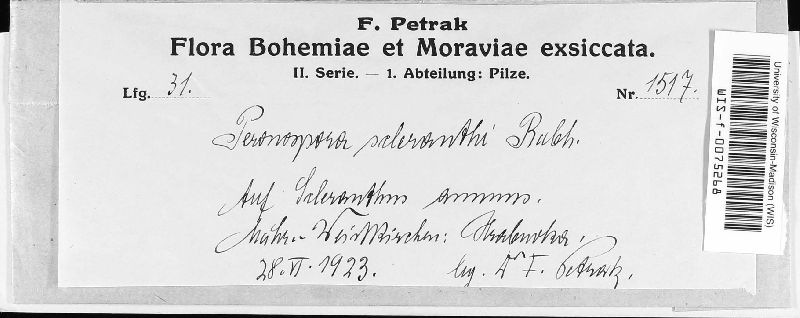 F. Petrak
Flora Bohemiae et Moraviae exsiccata.
II. Serie. — 1. Abteilung: Pilze.
Lfg. 31. Nr. 1517.
Peronospora scleranthi Rabh.
Auf Scleranthus annuus.
Mähr.-Weisskirchen: Hrabuvka.
28. VI. 1923. leg. Dr F. Petrak.
University of Wisconsin-Madison (WIS)
WIS-f-0075268